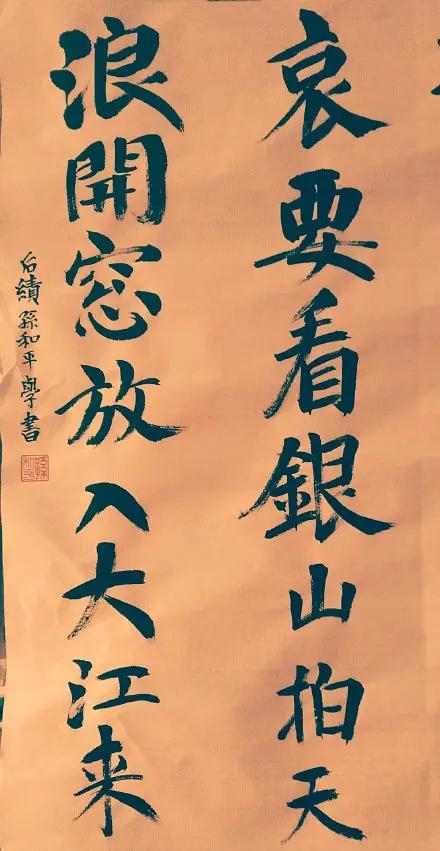 哀要看銀山拍天
浪開窓放入大江来
后績孫和平學書